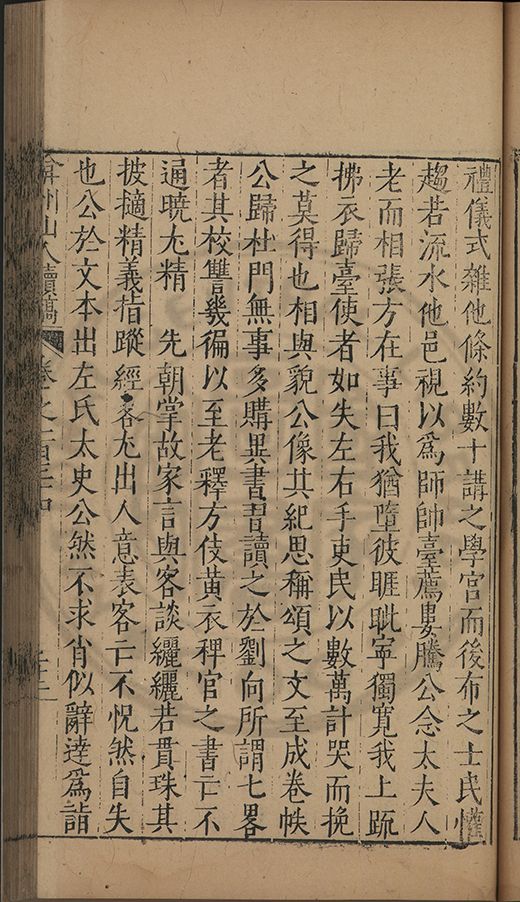 禮儀式雜他條約數十講之學官而後布之士民懽
趨若流水他邑視以爲師帥臺薦婁騰公念太夫人
老而相張方在事曰我猶墮彼睚眦寧獨寬我上䟽
拂衣歸臺使者如失左右手吏民以數萬計哭而挽
之莫得也相與貌公像共紀思稱頌之文至成卷帙
公歸杜門無事多購異書習讀之於劉向所謂七畧
者其校讐幾徧以至老釋方伎黃衣稗官之書亡不
通曉尤精　先朝掌故家言與客談纚纚若貫珠其
披擿精義指蹤經畧尤出人意表客亡不怳然自失
也公於文本出左氏太史公然不求肖似辭達爲詣
弇州山人續稿 卷之一百三十四 二十二